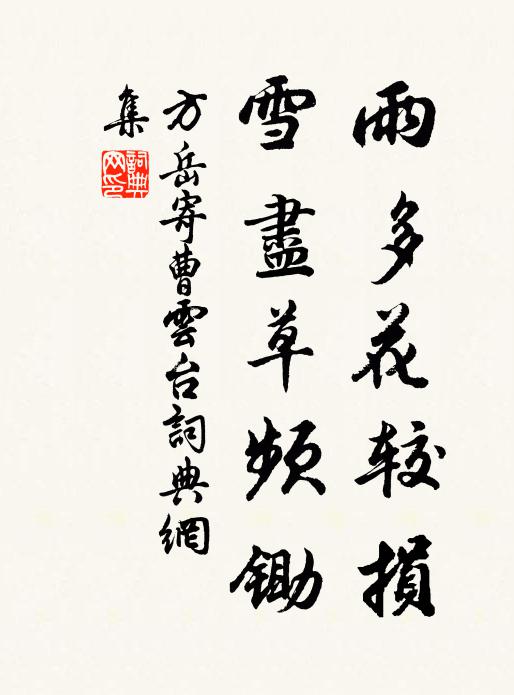 雨多花較損
雪盡草頻鋤
方岳寄曹雲台詞典網
集
詞典网印